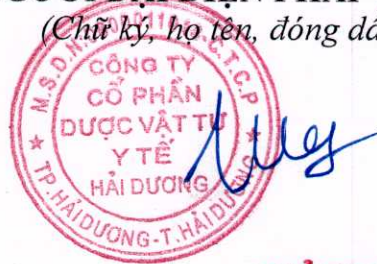 (Chữ ký, họ tên, đóng dấ
M.S.D.N: C.T.C.P
CÔNG TY
CỔ PHẦN
DƯỢC VẬT TƯ
Y TẾ
HẢI DƯƠNG
TP.HẢI DƯƠNG-T.HẢI DƯƠNG